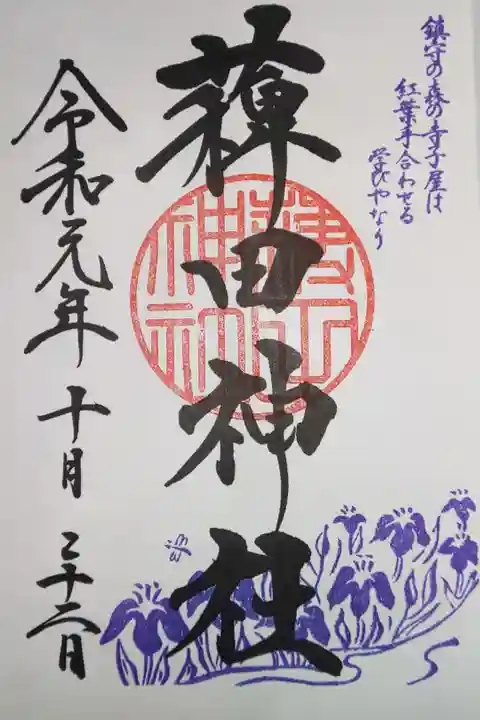 鎮守の森の寺子屋は
紅葉手合わせる
学びやなり
薭田神社
令和元年 十月 二十二日